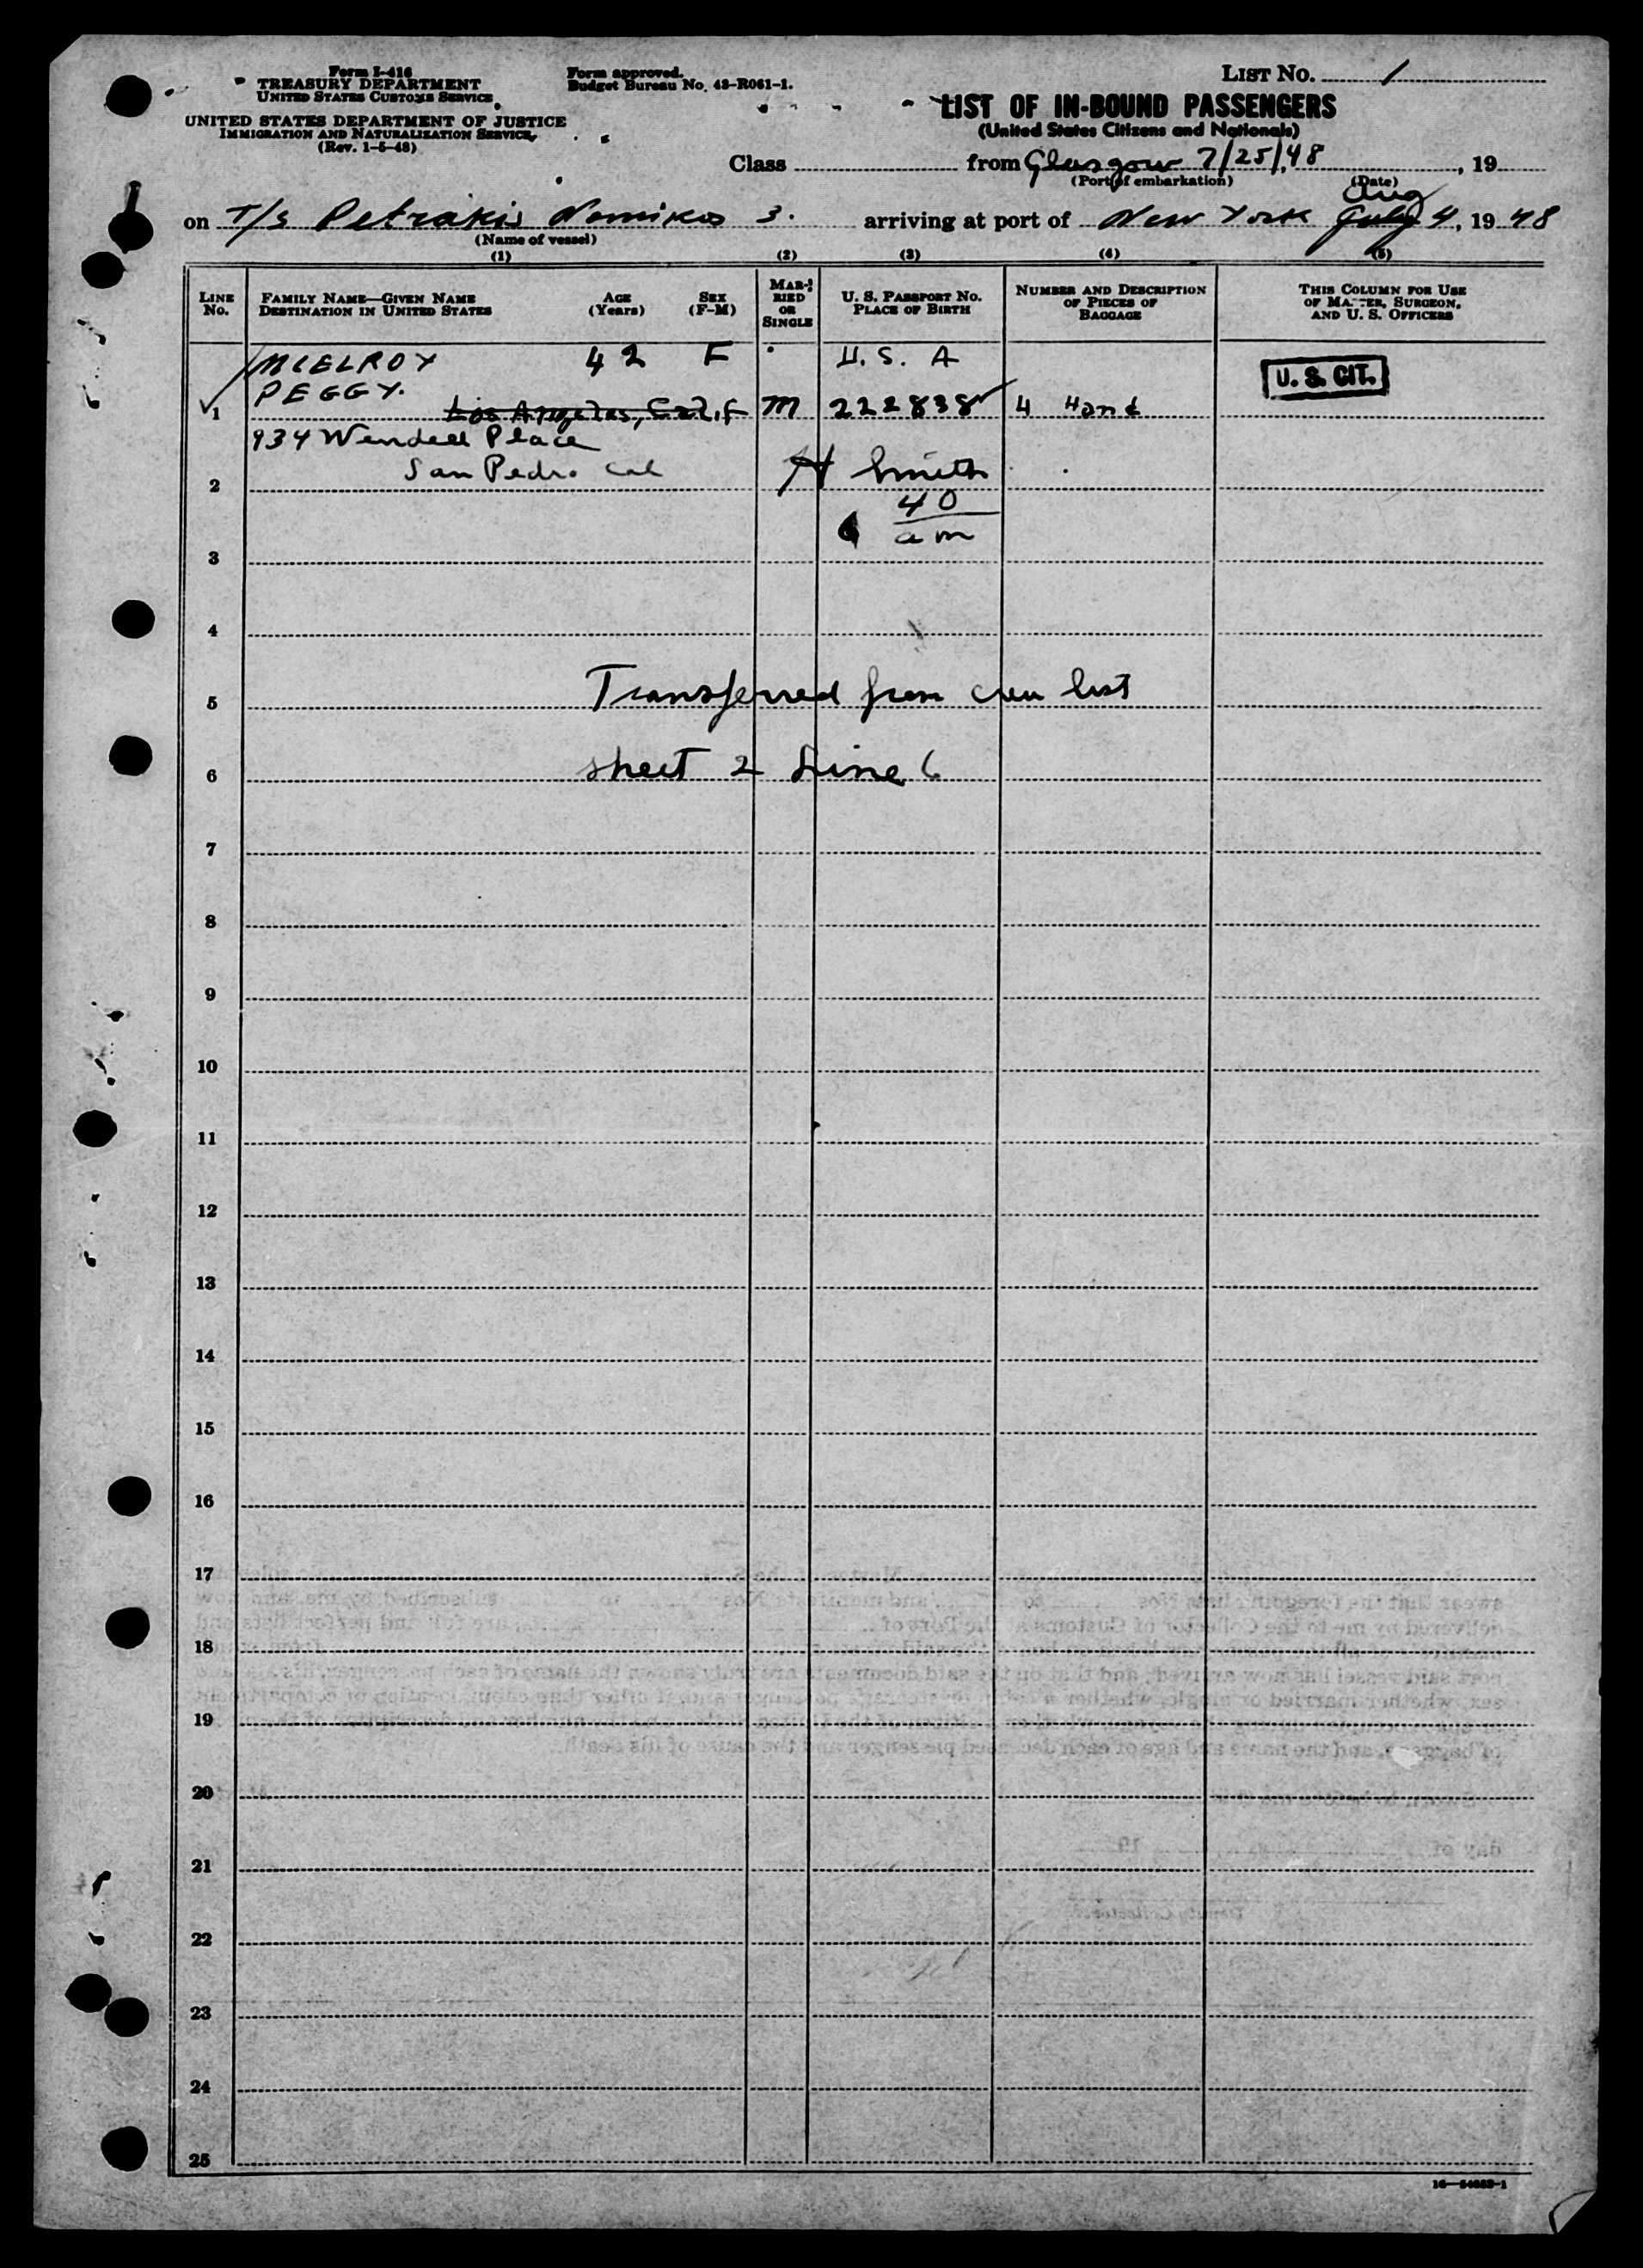 Form I-416
TREASURY DEPARTMENT
UNITED STATES CUSTOMS SERVICE
UNITED STATES DEPARTMENT OF JUSTICE
IMMIGRATION AND NATURALIZATION SERVICE
(Rev. 1-5-48)
Form approved.
Budget Bureau No. 43-R061-1.
LIST NO. 1
LIST OF IN-BOUND PASSENGERS
(United States Citizens and Nationals)
Class from Glasgow 7/25/48, 19
(Port of embarkation) (Date)
Aug
on T/S Petrakis Nomikos 3. arriving at port of New York July 4, 19 48
(Name of vessel)
(1) (2) (3) (4) (5)
LINE NO.
FAMILY NAME—GIVEN NAME
DESTINATION IN UNITED STATES
AGE (Years)
SEX (F-M)
MARRIED OR SINGLE
U. S. PASSPORT NO.
PLACE OF BIRTH
NUMBER AND DESCRIPTION
OF PIECES OF
BAGGAGE
THIS COLUMN FOR USE
OF MASTER, SURGEON,
AND U. S. OFFICERS
MCELROY 42 F U. S. A
PEGGY. U. S. CIT.
1 Los Angeles, Calif M 222838 4 Hand
934 Wendell Place
San Pedro Cal H Smith
2
40
am
3
4
Transferred from crew list
5
sheet 2 Line 6
6
7
8
9
10
11
12
13
14
15
16
17
18
19
20
21
22
23
24
25